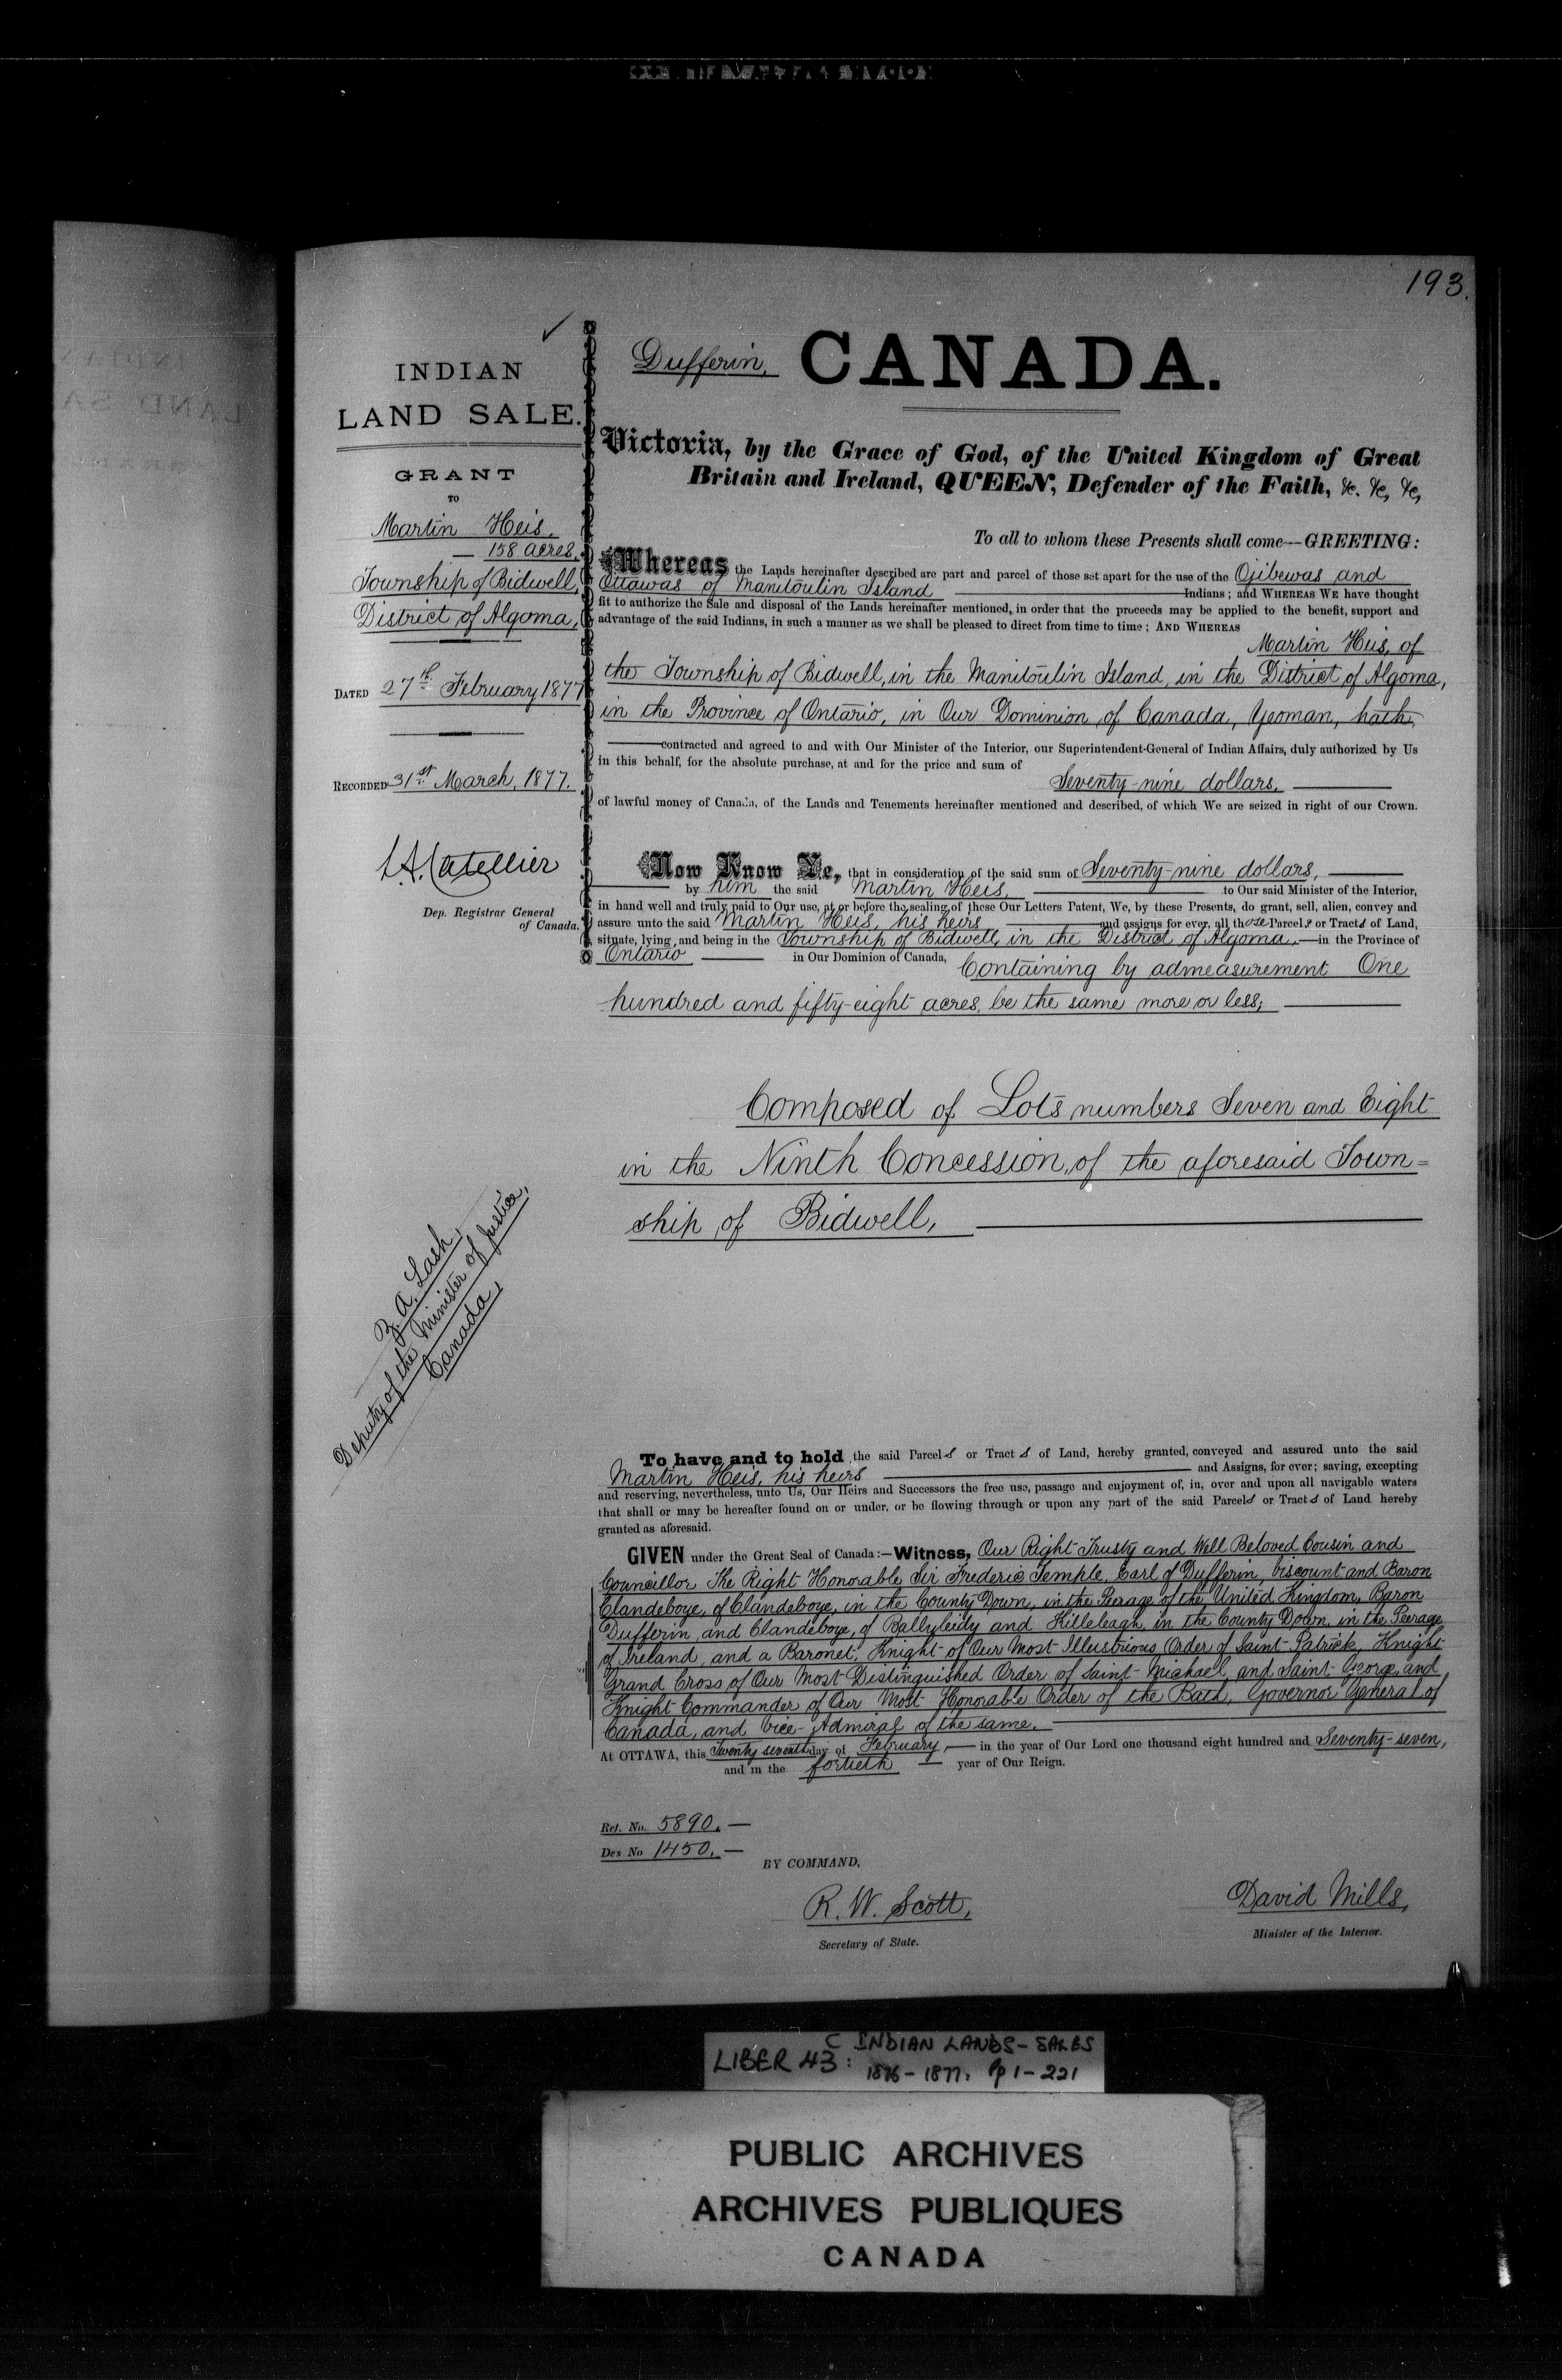 193.
INDIAN
LAND SALE.
GRANT
TO
Martin Heis.
158 acres,
Township of Bidwell,
District of Algoma,
DATED 27th February 1877
RECORDED 31st March, 1877.
L.A. Catellier
Dep. Registrar General
of Canada.
Z. A. Lash,
Deputy of the Minister of Justice,
Canada,
Dufferin, CANADA.
Victoria, by the Grace of God, of the United Kingdom of Great
Britain and Ireland, QUEEN, Defender of the Faith, &c. &c, &c,
To all to whom these Presents shall come---GREETING:
Whereas the Lands hereinafter described are part and parcel of those set apart for the use of the Ojibewas and
Ottawas of Manitoulin Island Indians; and WHEREAS WE have thought
fit to authorize the Sale and disposal of the Lands hereinafter mentioned, in order that the proceeds may be applied to the benefit, support and
advantage of the said Indians, in such a manner as we shall be pleased to direct from time to time; AND WHEREAS
Martin Heis, of
the Township of Bidwell, in the Manitoulin Island, in the District of Algoma,
in the Province of Ontario, in Our Dominion of Canada, Yeoman, hath,
contracted and agreed to and with Our Minister of the Interior, our Superintendent-General of Indian Affairs, duly authorized by Us
in this behalf, for the absolute purchase, at and for the price and sum of
Seventy-nine dollars,
of lawful money of Canada, of the Lands and Tenements hereinafter mentioned and described, of which We are seized in right of our Crown.
Now Know Ye, that in consideration of the said sum of Seventy-nine dollars,
by him the said Martin Heis, to Our said Minister of the Interior,
in hand well and truly paid to Our use, at or before the sealing of these Our Letters Patent, We, by these Presents, do grant, sell, alien, convey and
assure unto the said Martin Heis, his heirs and assigns for ever, all those Parcels or Tracts of Land,
situate, lying and being in the Township of Bidwell, in the District of Algoma, in the Province of
Ontario in Our Dominion of Canada, Containing by admeasurement One
hundred and fifty-eight acres, be the same more or less;
Composed of Lots numbers Seven and Eight
in the Ninth Concession, of the aforesaid Town=
ship of Bidwell,
To have and to hold the said Parcels or Tracts of Land, hereby granted, conveyed and assured unto the said
Martin Heis, his heirs and Assigns, for ever; saving, excepting
and reserving, nevertheless, unto Us, Our Heirs and Successors the free use, passage and enjoyment of, in, over and upon all navigable waters
that shall or may be hereafter found on or under, or be flowing through or upon any part of the said Parcels or Tracts of Land hereby
granted as aforesaid.
GIVEN under the Great Seal of Canada:—Witness, Our Right Trusty and Well Beloved Cousin and
Councillor The Right Honorable Sir Frederic Temple, Earl of Dufferin, Viscount and Baron
Clandeboye, of Clandeboye, in the County Down, in the Peerage of the United Kingdom, Baron
Dufferin and Clandeboye, of Ballyleidy and Killeleagh, in the County Down, in the Peerage
of Ireland, and a Baronet, Knight of Our Most Illustrious Order of Saint Patrick, Knight
Grand Cross of Our Most Distinguished Order of Saint Michael and Saint George, and
Knight Commander of Our Most Honorable Order of the Bath. Governor General of
Canada, and Vice-Admiral of the same.
At OTTAWA, this Twenty seventh day of February, in the year of Our Lord one thousand eight hundred and Seventy-seven,
and in the fortieth year of Our Reign.
Ref. No. 5890.
Des No 1450.
BY COMMAND,
R. W. Scott,
Secretary of State.
David Mills,
Minister of the Interior.
LIBER 43: C INDIAN LANDS-SALES
1876-1877. Pp 1-221
PUBLIC ARCHIVES
ARCHIVES PUBLIQUES
CANADA